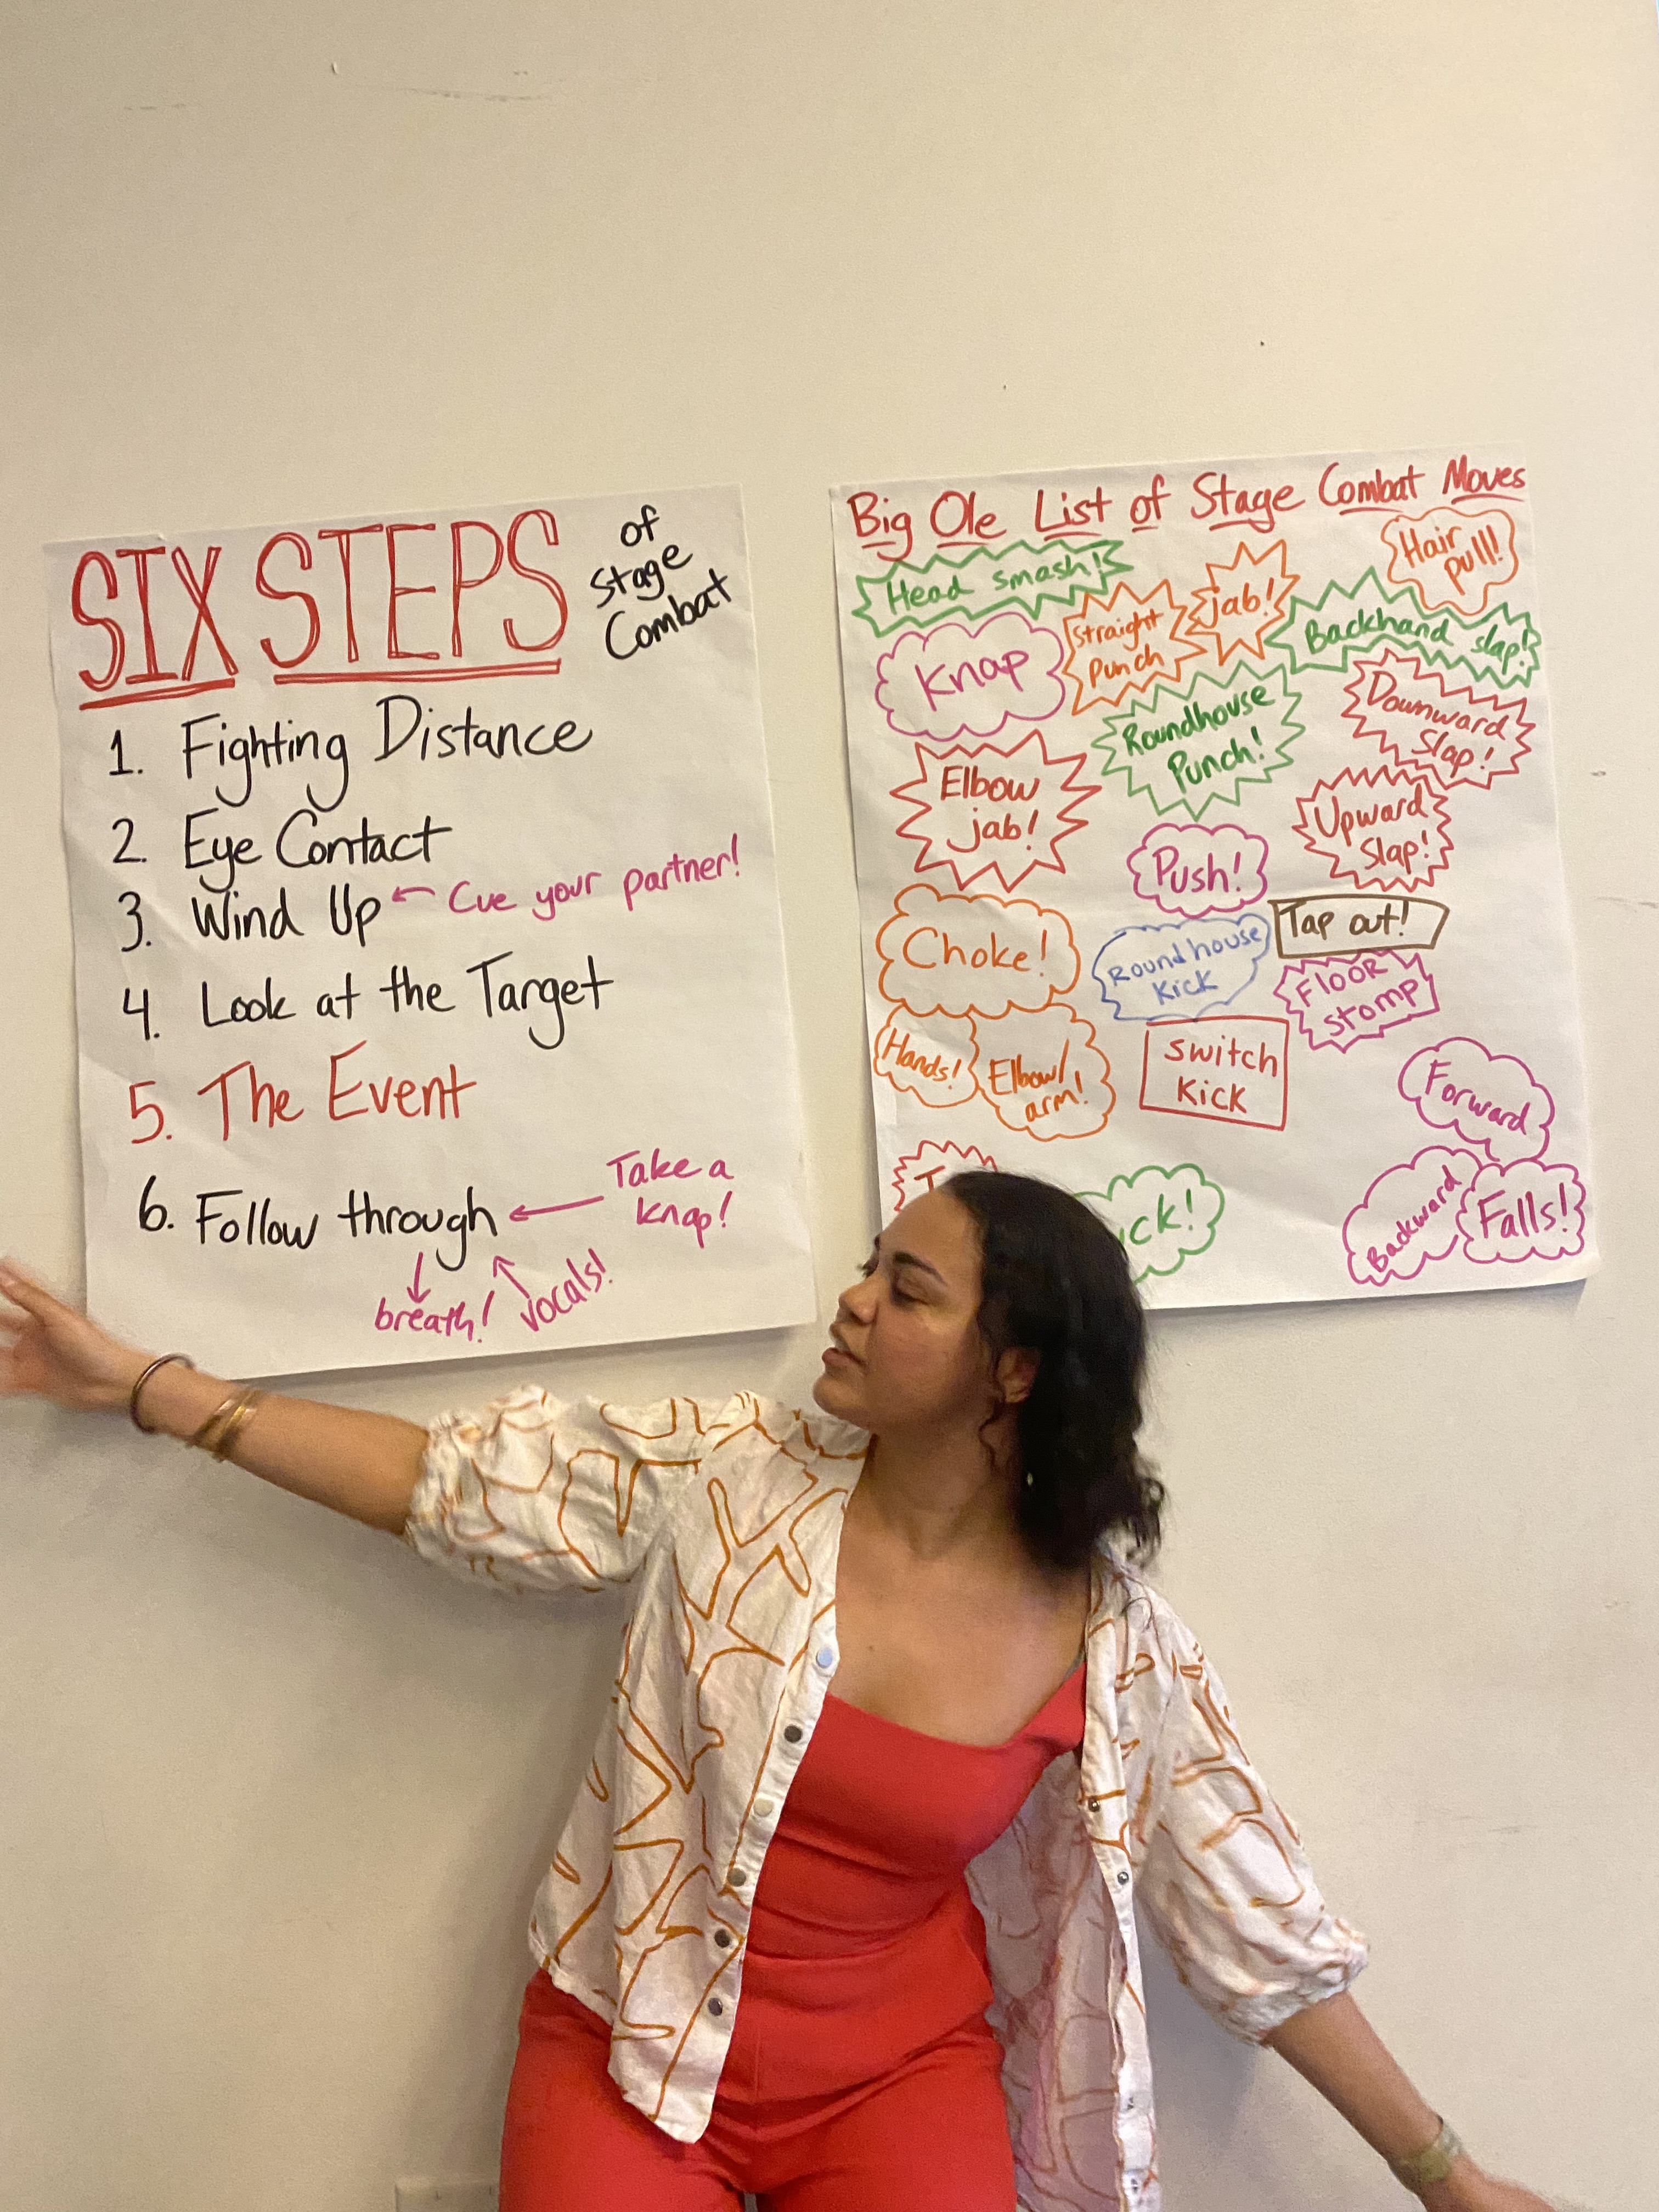 SIX STEPS
of
stage
Combat
1. Fighting Distance
2. Eye Contact
3. Wind Up ← Cue your partner!
4. Look at the Target
5. The Event
6. Follow through
Take a
knap!
breath!
vocals!
Big Ole List of Stage Combat Moves
Head smash!
Straight
Punch
jab!
Hair
pull!
Knap
Backhand slap!
Roundhouse
Punch!
Downward
Slap!
Elbow
jab!
Upward
Slap!
Push!
Choke!
Roundhouse
Kick
Tap out!
FLOOR
stomp
Hands!
Elbow/
arm!
switch
Kick
Forward
Backward
Falls!